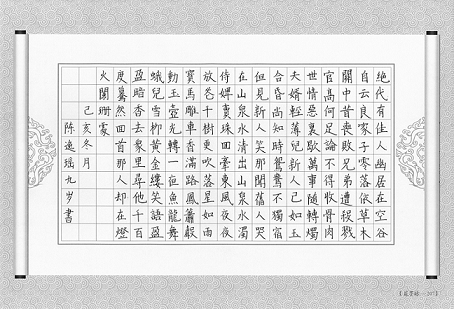 绝代有佳人幽居在空谷
自云良家子零落依草木
關中昔喪敗兄弟遭殺戮
官高何足論不得收骨肉
世情惡衰歇萬事隨轉燭
夫婿輕薄兒新人已如玉
合昏尚知時鴛鴦不獨宿
但見新人笑那聞舊人哭
在山泉水清出山泉水濁
侍婢賣珠回東風夜
放花千樹更吹落星如雨
寶馬雕車香滿路鳳簫聲
動玉壺光轉一夜魚龍舞
蛾兒雪柳黃金縷笑語盈
盈暗香去衆里尋他千百
度驀然回首那人却在燈
火闌珊處
己亥冬月
陈逸瑶九岁書